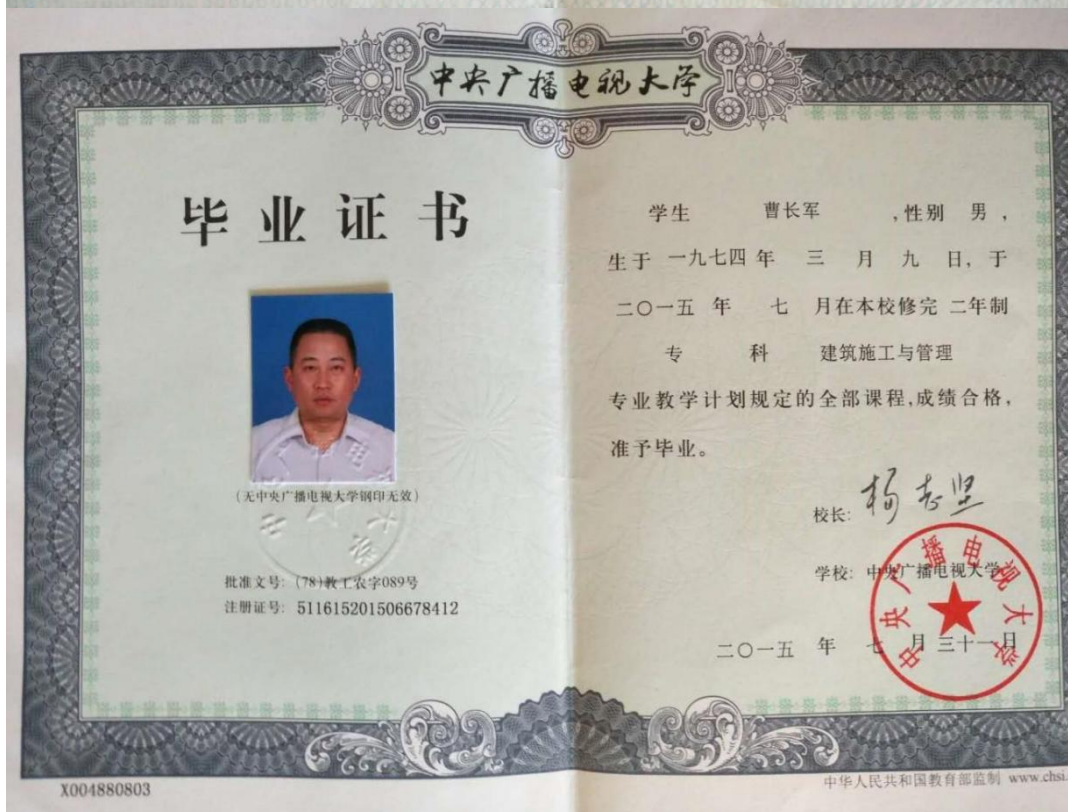 中央广播电视大学
毕业证书
(无中央广播电视大学钢印无效)
批准文号: (78)教工农字089号
注册证号: 511615201506678412
X004880803
学生 曹长军 ,性别 男 ,
生于 一九七四 年 三 月 九 日, 于
二〇一五 年 七 月在本校修完 二年制
专 科 建筑施工与管理
专业教学计划规定的全部课程,成绩合格,
准予毕业。
校长: 杨志坚
学校: 中央广播电视大学
二〇一五 年 七 月 三十一 日
中央广播电视大学
中华人民共和国教育部监制 www.chsi.